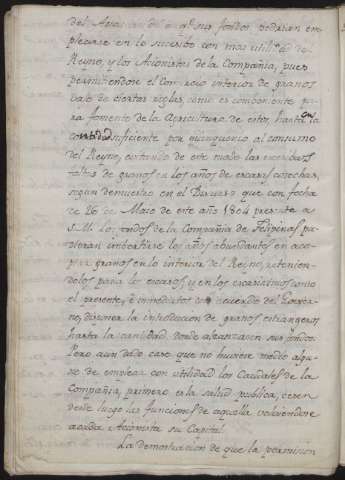 del Asia
sus fondos podrian em-
plearse en lo sucesivo con mas utilid.d del
Reyno, y los Acionistas de la Compañia, pues
permitiendose el Comercio interior de granos
vajo de ciertas reglas, como es combeniente pa-
ra fomento de la Agricultura de estos, hasta la
cantidad suficiente por quinquenio al consumo
del Reyno, evitando de este modo las excesibas
faltas de granos en los años de escasas cosechas,
segun demuestro en el Discurso que con fecha
de 26 de Maio de este año 1804 presente a
S.M. los fondos de la Compañia de Felipinas pu-
dieran imbertirse los años abundantes en aco-
piar granos en lo interior del Reyno, retenien-
dolos para los escasos, y en los escasisimos como
el presente, è inmediatos de acuerdo del Govier-
no, disponer la introducion de granos estrangeros
hasta la cantidad donde alcanzasen sus fondos.
Pero aun dado caso que no huviere medio algu-
no de emplear con utilidad los Caudales de la
Compañia, primero es la salud publica, cesen
desde luego las funciones de aquella volviendose
a cada Accionista su Capital.
La demostracion de que la permision